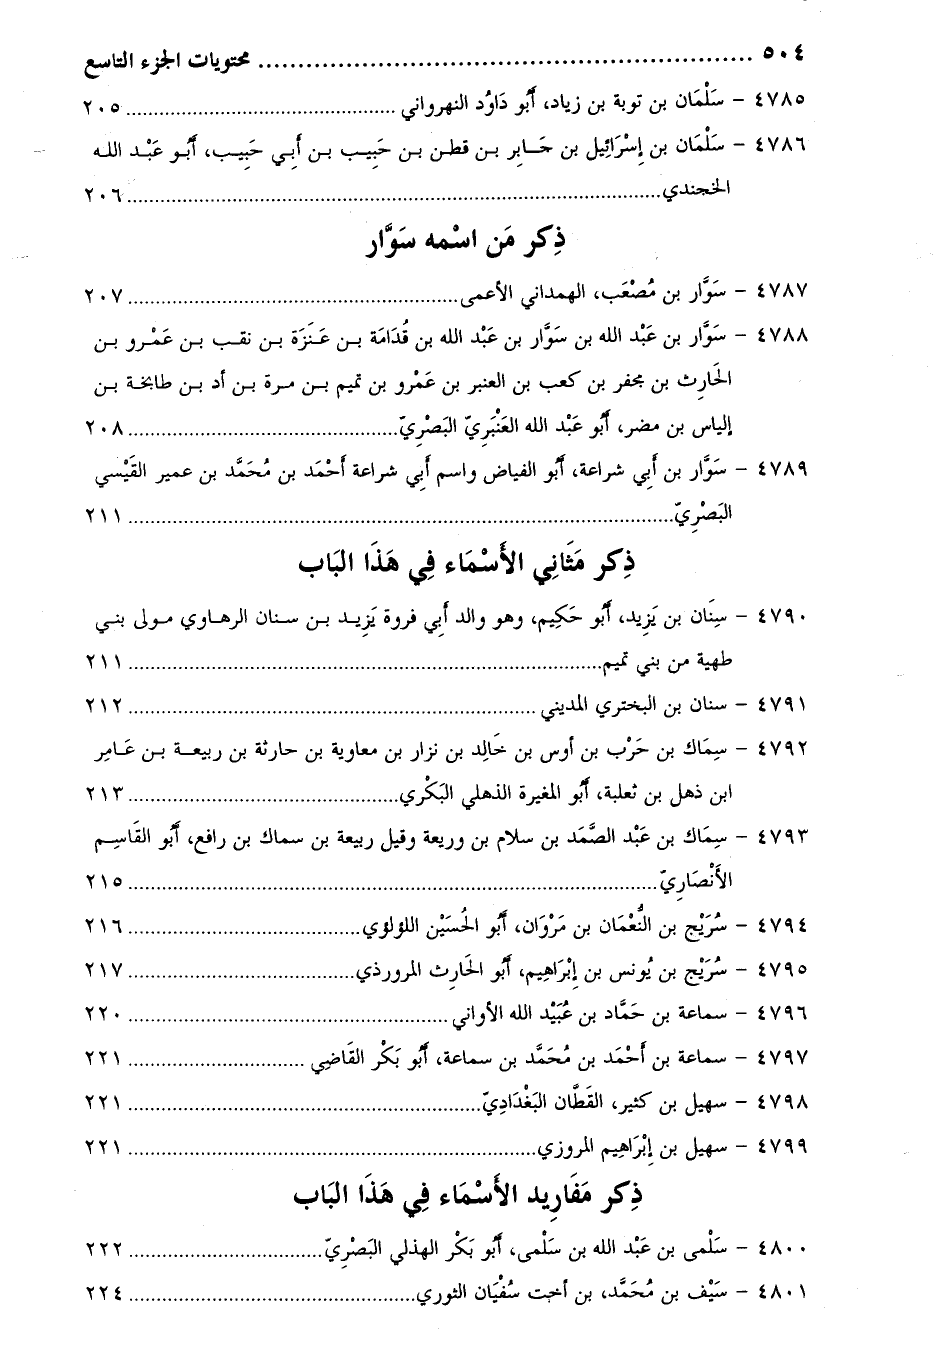 ٥٠٤ ............ محتويات الجزء التاسع
٤٧٨٥ - سَلْمَان بن توبة بن زياد، أَبُو دَاوُد النهرواني ............ ٢٠٥
٤٧٨٦ - سَلْمَان بن إِسْرَائِيل بن جَابِر بن قطن بن حَبِيب بن أَبِي حَبِيب، أَبُو عَبْد الله
الخجندي ............ ٢٠٦
ذِكر مَن اسْمه سَوَّار
٤٧٨٧ - سَوَّار بن مُصْعَب، الهمداني الأعمى ............ ٢٠٧
٤٧٨٨ - سَوَّار بن عَبْد الله بن سَوَّار بن عَبْد الله بن قُدَامَة بن عَنَزَة بن نقب بن عَمْرو بن
الحَارِث بن مجفر بن كعب بن العنبر بن عَمْرو بن تميم بن مرة بن أد بن طابخة بن
إلياس بن مضر، أَبُو عَبْد الله العَنْبَرِيّ البَصْرِيّ ............ ٢٠٨
٤٧٨٩ - سَوَّار بن أَبِي شراعة، أَبُو الفياض واسم أَبِي شراعة أَحْمَد بن مُحَمَّد بن عمير القَيْسي
البَصْرِيّ ............ ٢١١
ذِكر مَثَانِي الأَسْمَاء فِي هَذَا البَاب
٤٧٩٠ - سِنَان بن يَزِيد، أَبُو حَكِيم، وهو والد أَبِي فروة يَزِيد بن سنان الرهاوي مولى بني
طهية من بني تميم ............ ٢١١
٤٧٩١ - سنان بن البختري المديني ............ ٢١٢
٤٧٩٢ - سِمَاك بن حَرْب بن أوس بن خَالِد بن نزار بن معاوية بن حارثة بن ربيعة بن عَامِر
ابن ذهل بن ثعلبة، أَبُو المغيرة الذهلي البَكْري ............ ٢١٣
٤٧٩٣ - سِمَاك بن عَبْد الصَّمَد بن سلام بن وريعة وقيل ربيعة بن سماك بن رافع، أَبُو القَاسِم
الأَنْصَارِيّ ............ ٢١٥
٤٧٩٤ - سُرَيْج بن النُّعْمَان بن مَرْوَان، أَبُو الحُسَيْن اللؤلؤي ............ ٢١٦
٤٧٩٥ - سُرَيْج بن يُونس بن إِبْرَاهِيم، أَبُو الحَارِث المروردذي ............ ٢١٧
٤٧٩٦ - سماعة بن حَمَّاد بن عُبَيْد الله الأواني ............ ٢٢٠
٤٧٩٧ - سماعة بن أَحْمَد بن مُحَمَّد بن سماعة، أَبُو بَكْر القَاضِي ............ ٢٢١
٤٧٩٨ - سهيل بن كثير، القَطَّان البَغْدَادِيّ ............ ٢٢١
٤٧٩٩ - سهيل بن إِبْرَاهِيم المروزي ............ ٢٢١
ذِكر مَفَارِيد الأَسْمَاء فِي هَذَا البَاب
٤٨٠٠ - سَلْمى بن عَبْد الله بن سَلْمى، أَبُو بَكْر الهذلي البَصْرِيّ ............ ٢٢٢
٤٨٠١ - سَيْف بن مُحَمَّد، بن أخت سُفْيَان الثوري ............ ٢٢٤